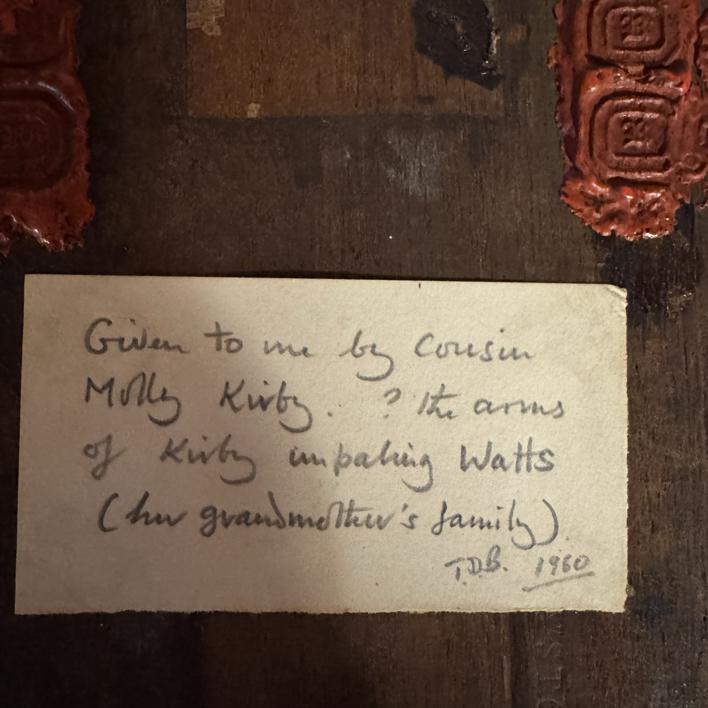 Given to me by Cousin
Molly Kirby. ? the arms
of Kirby impaling Watts
(her grandmother's family).
T.D.B. 1960